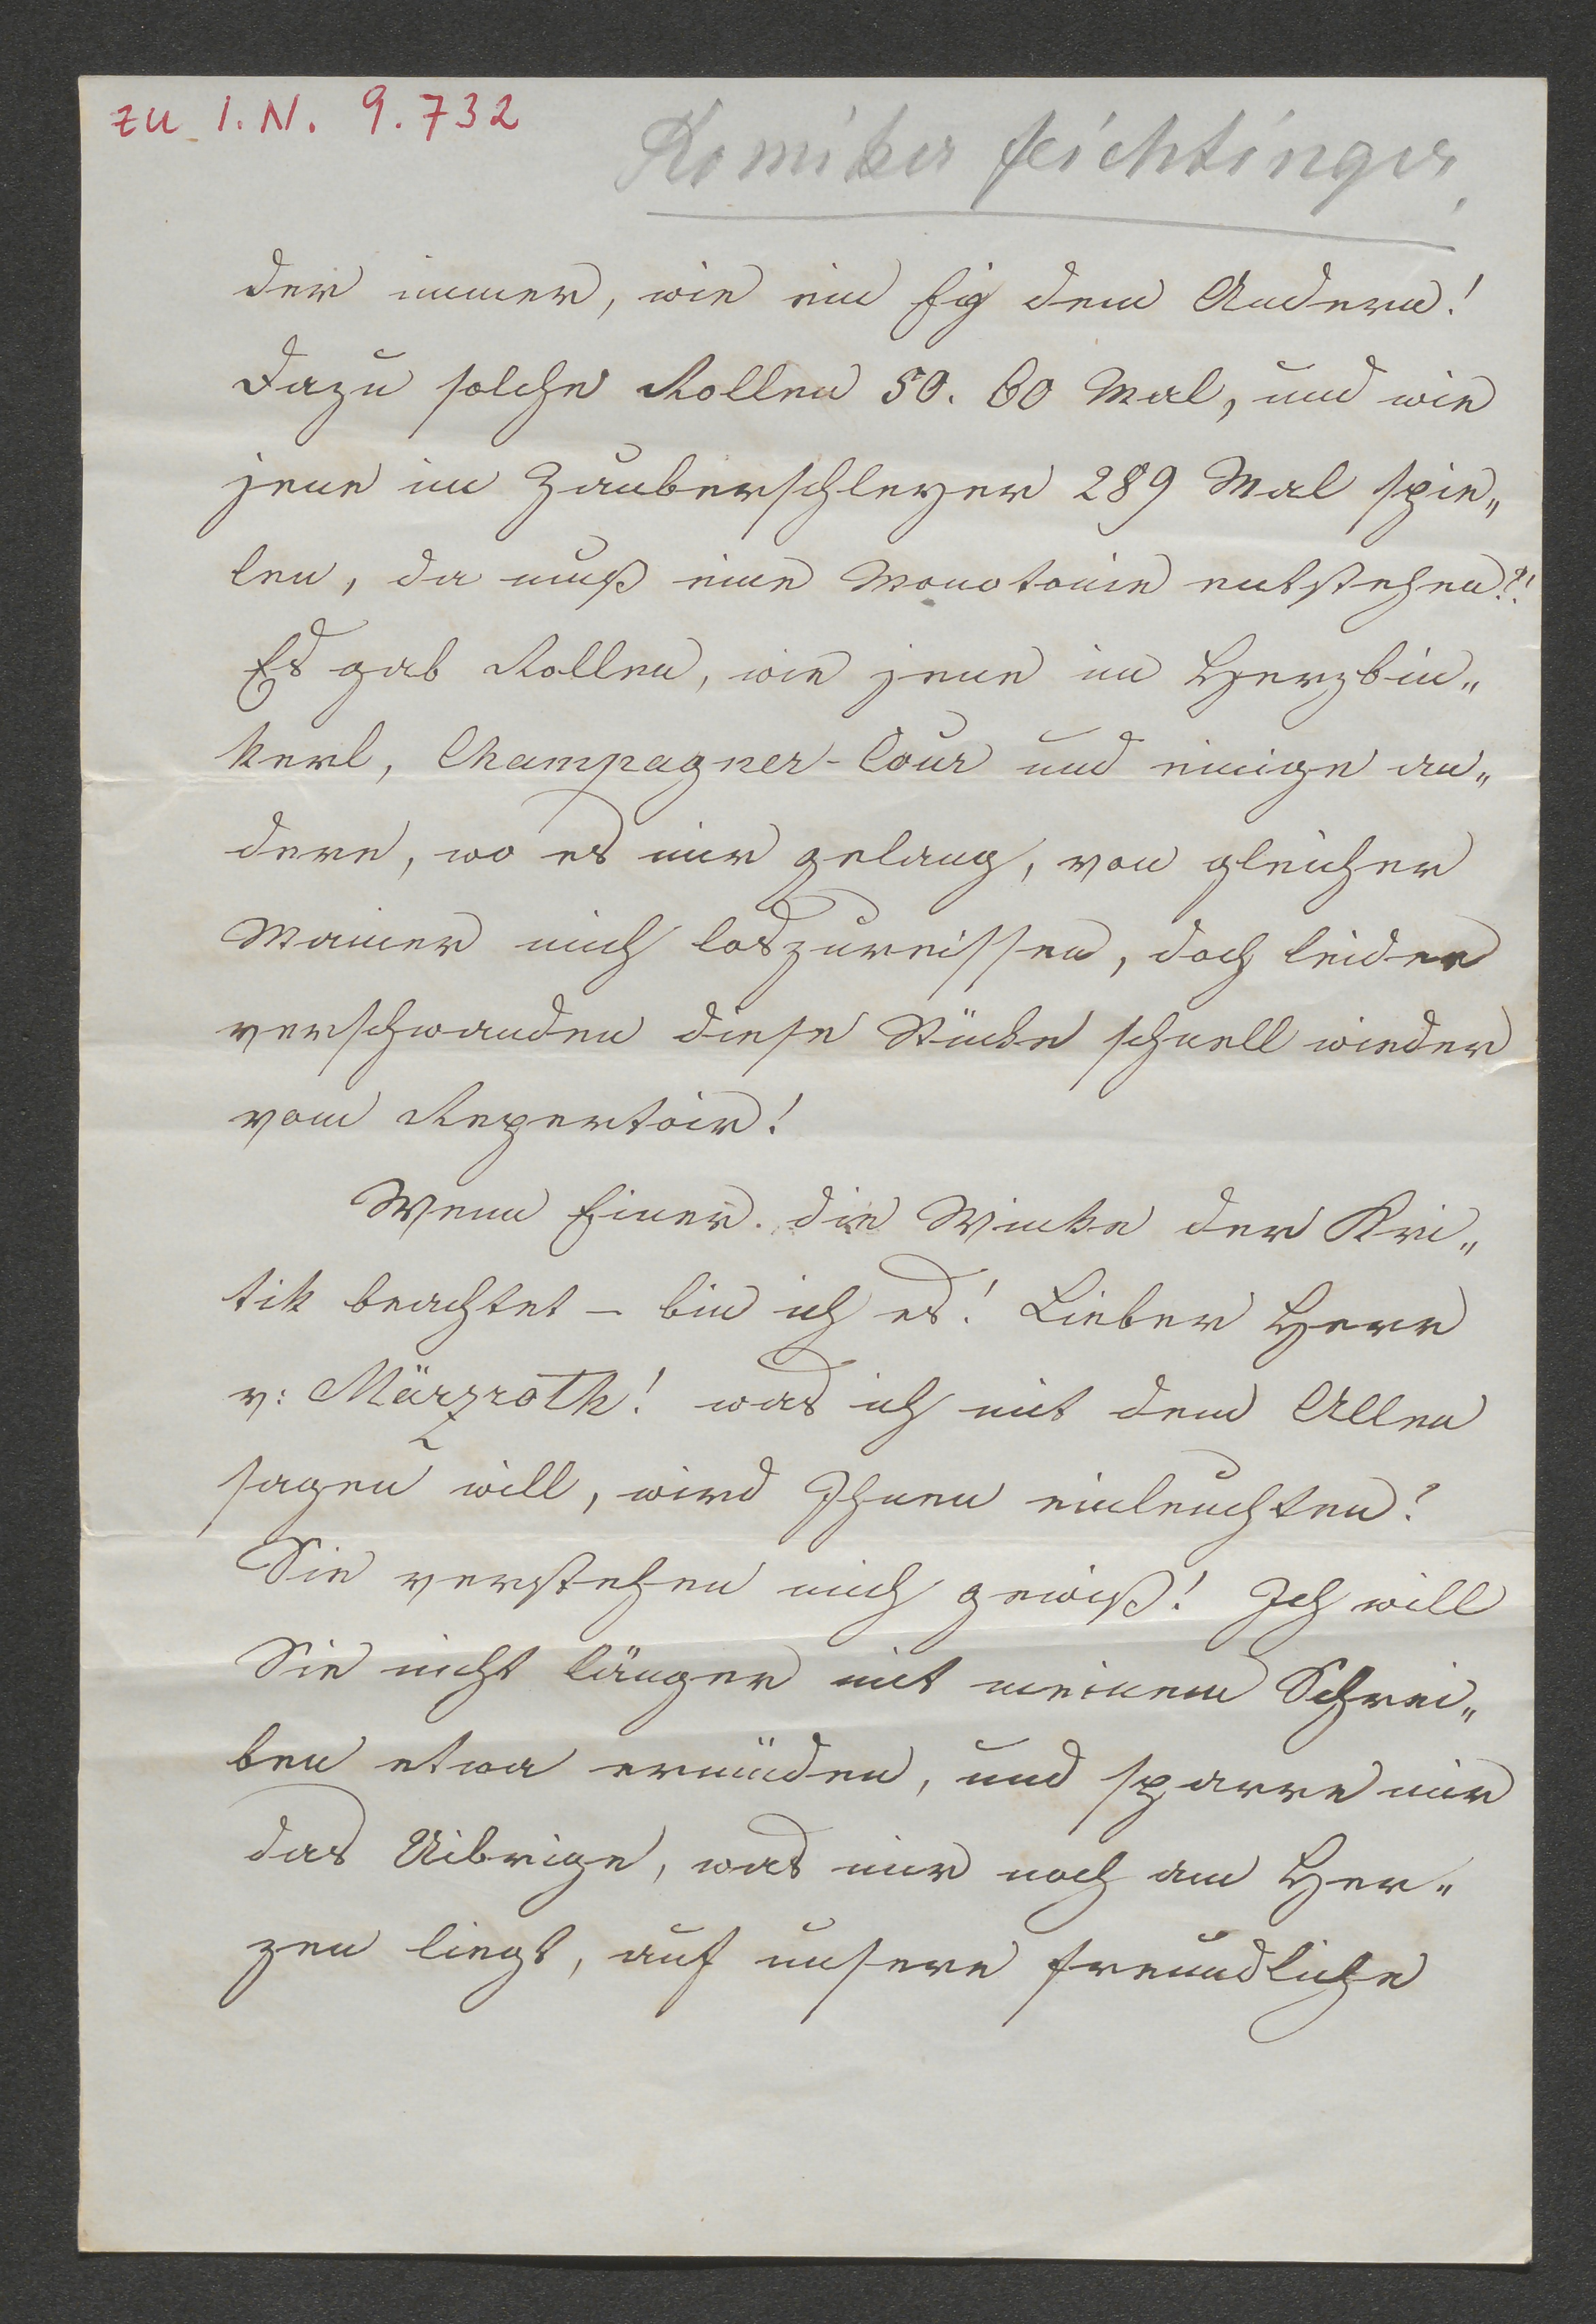 zu I.N. 9.732
Komiker Feichtinger
der immer, wie ein Ey dem Andern!
Dazu solche Rollen 50. 60 Mal, und wie
jene im Zauberschleyer 289 Mal spie„
len, da muß eine Monotonie entstehen?!
Es gab Rollen, wie jene im Herzbin„
kerl, Champagner-Cour und einige an„
dere, wo es mir gelang, von gleicher
Manier mich loszureissen, doch leider
verschwanden diese Stücke schnell wieder
vom Repertoir!
Wenn Einer die Winke der Kri„
tik beachtet – bin ich es! Lieber Herr
v: Märzroth! was ich mit dem Allen
sagen will, wird Ihnen einleuchten?
Sie verstehen mich gewiß! Ich will
Sie nicht länger mit meinem Schrei„
ben etwa ermüden, und sparre mir
das Uibrige, was mir noch am Her„
zen liegt, auf unsere freundliche